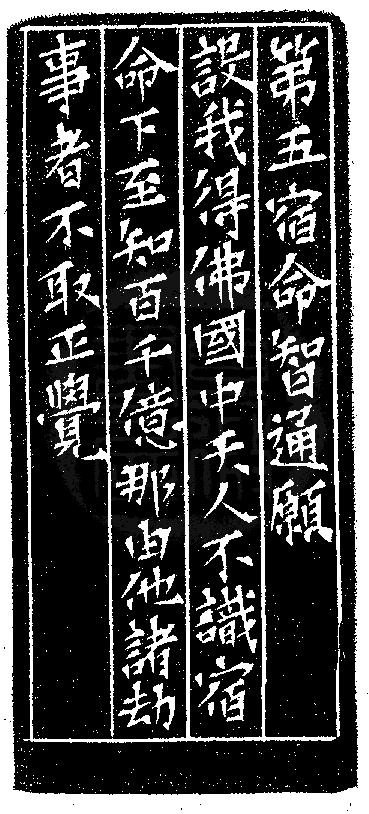 第五宿命智通願
設我得佛國中天人不識宿
命下至知百千億那由他諸劫
事者不取正覺